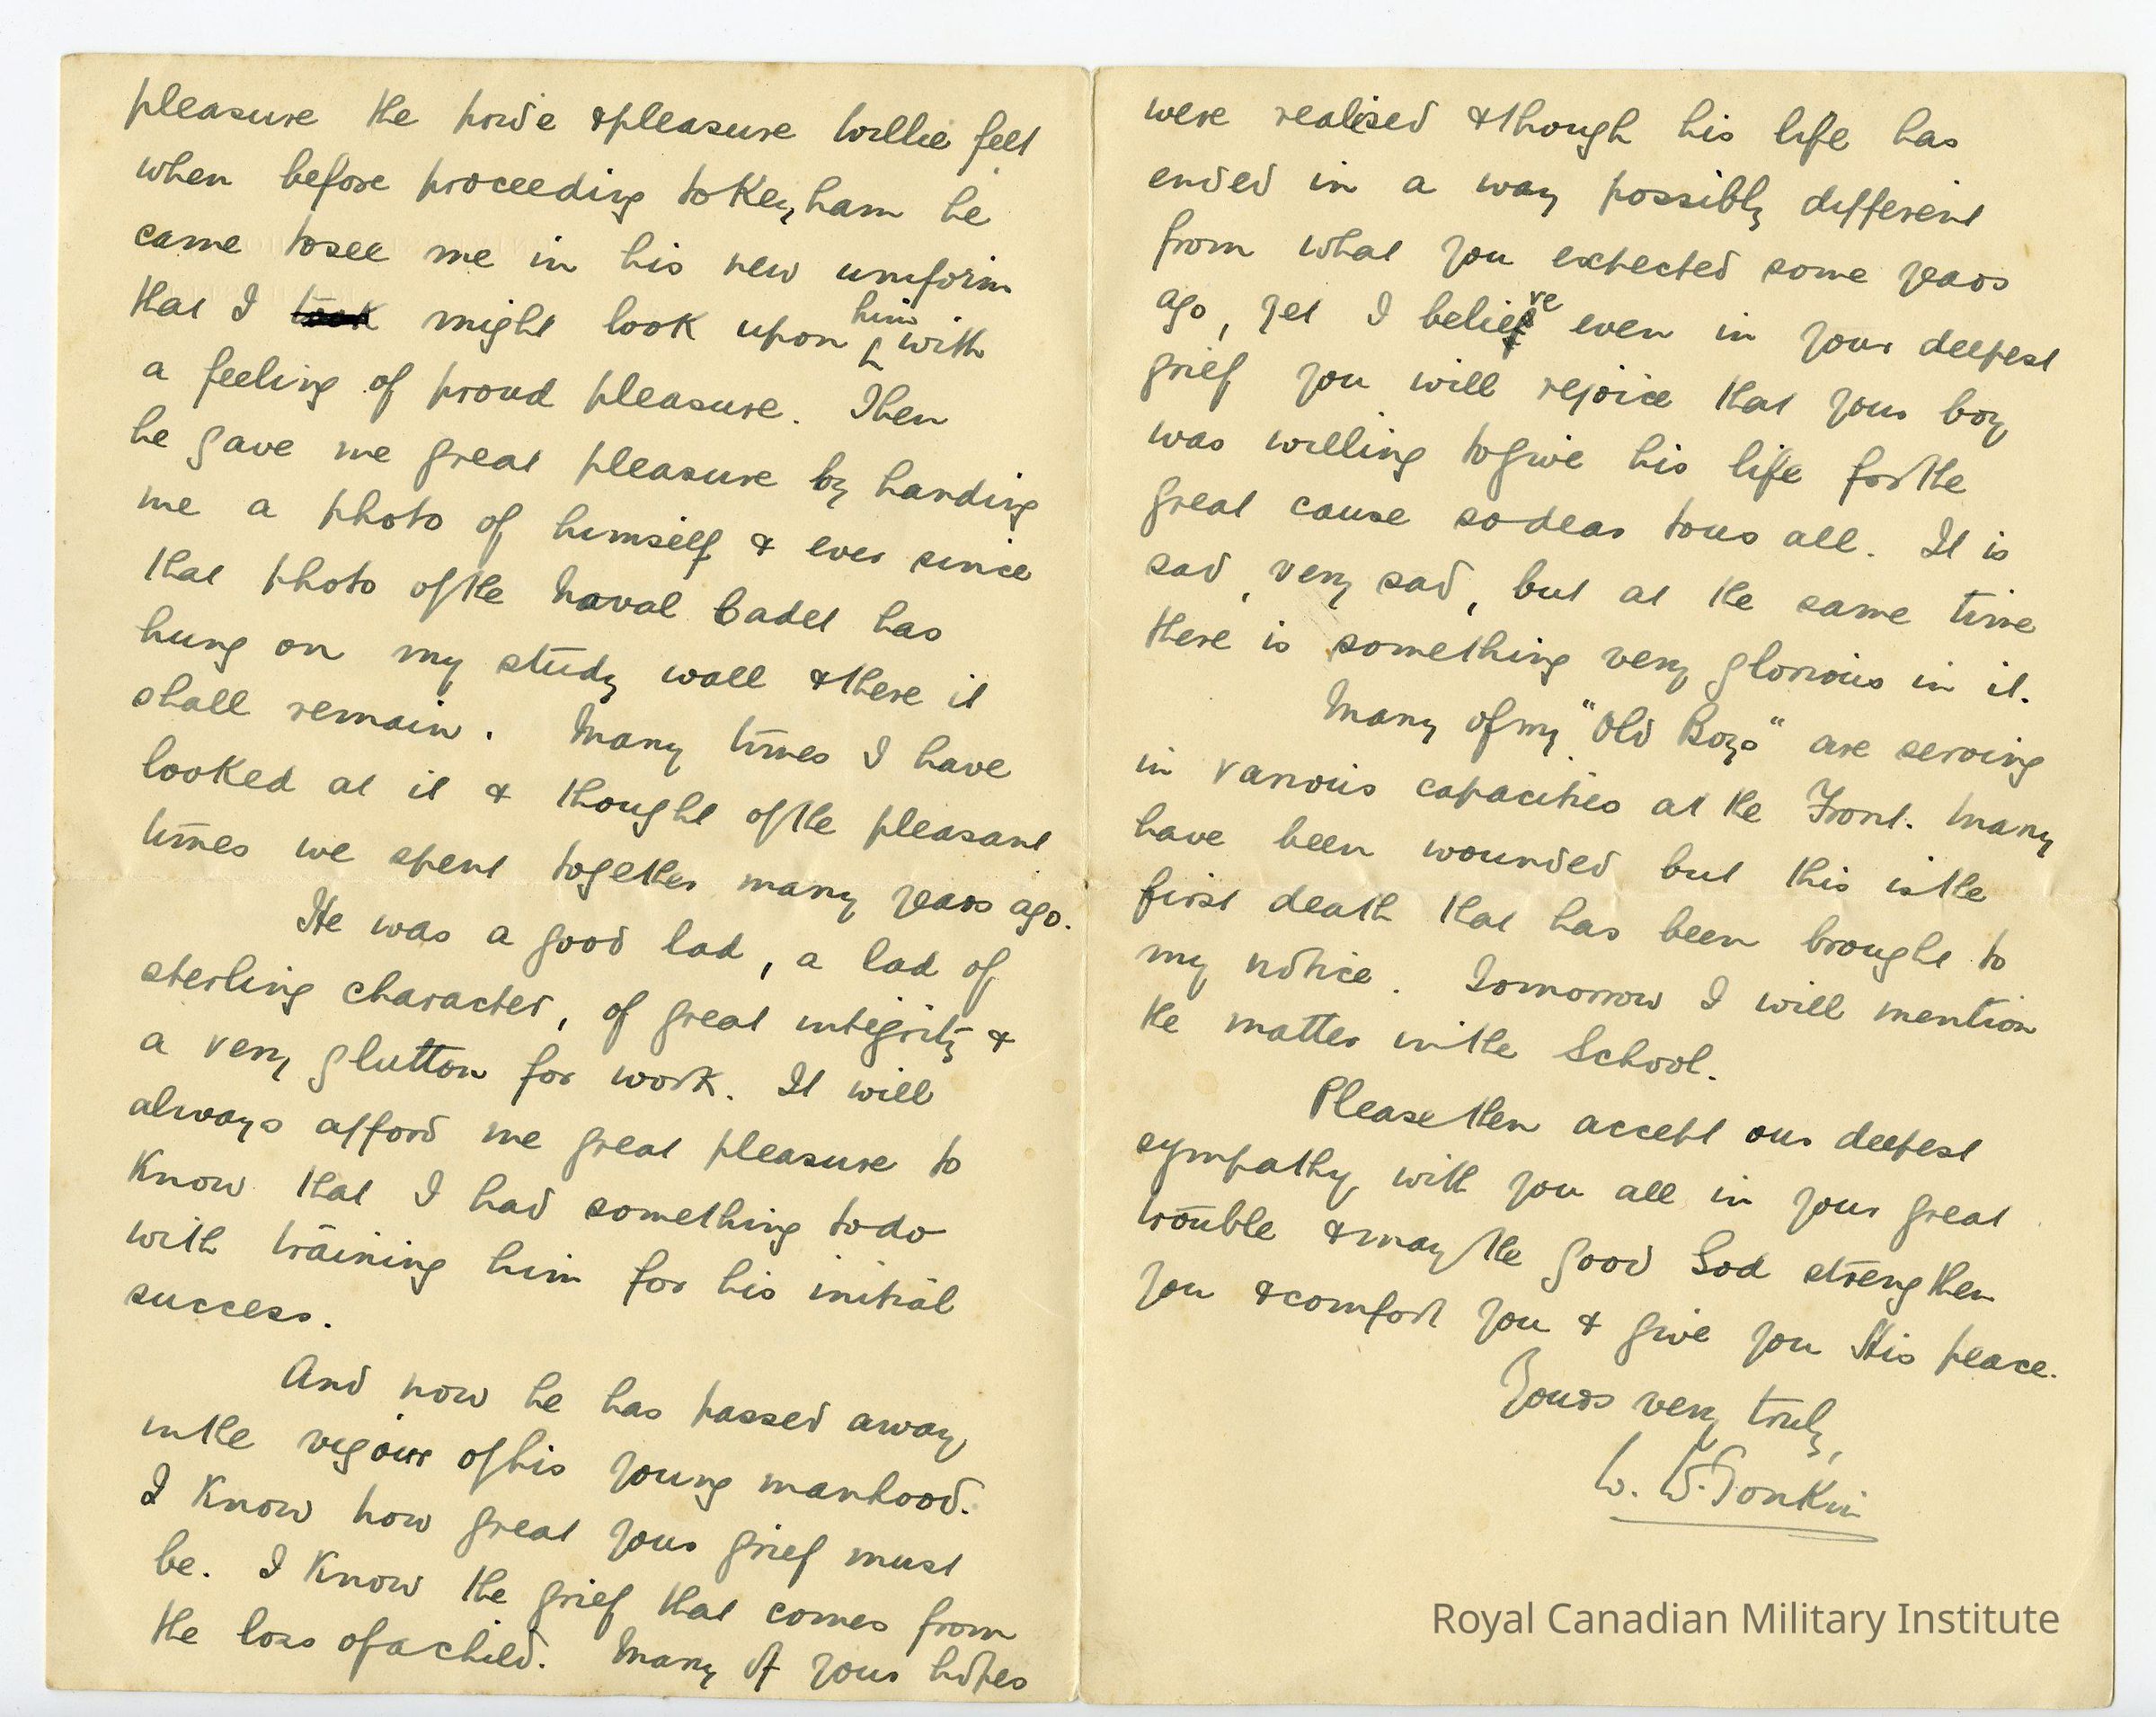 pleasure the pride & pleasure Willie felt
when before proceeding to Keyham he
came to see me in his new uniform
that I took might look upon him with
a feeling of proud pleasure. Then
he gave me great pleasure by handing
me a photo of himself & ever since
that photo of the Naval Cadet has
hung on my study wall & there it
shall remain. Many times I have
looked at it & thought of the pleasant
times we spent together many years ago.
He was a good lad, a lad of
sterling character, of great integrity &
a very glutton for work. It will
always afford me great pleasure to
know that I had something to do
with training him for his initial
success.
And now he has passed away
in the vigour of his young manhood.
I know how great your grief must
be. I know the grief that comes from
the loss of a child. Many of your hopes
were realised & though his life has
ended in a way possibly different
from what you expected some years
ago, yet I believe even in your deepest
grief you will rejoice that your boy
was willing to give his life for the
great cause so dear to us all. It is
sad, very sad, but at the same time
there is something very glorious in it.
Many of my "Old Boys" are serving
in various capacities at the Front. Many
have been wounded but this is the
first death that has been brought to
my notice. Tomorrow I will mention
the matter in the School.
Please then accept our deepest
sympathy with you all in your great
trouble & may the good God strengthen
you & comfort you & give you His peace.
Yours very truly,
W. S. Tonkin
Royal Canadian Military Institute